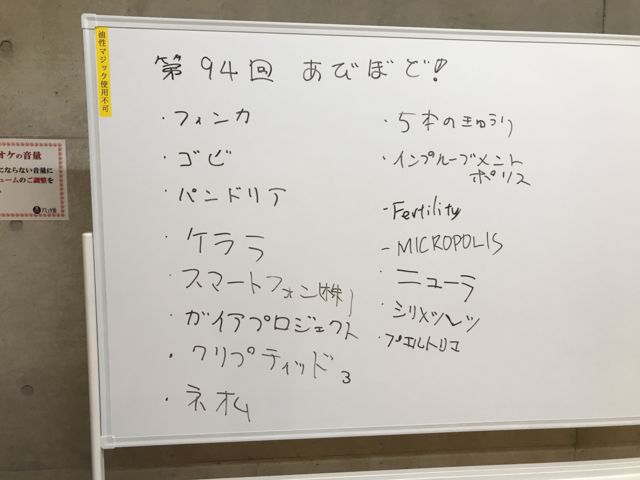 油性マジック使用不可
第94回 あびぼど!
・フィンカ
・ゴビ
・パンドリア
・ケララ
・スマートフォン(株)
・ガイアプロジェクト
・クリプティッド 3
・ネオム
・5本のきゅうり
・インプルーブメント
ポリス
-Fertility
-MICROPOLIS
・ニューラ
・プエルトリコ
オケの音量
にならない音量に
ュームのご調整を